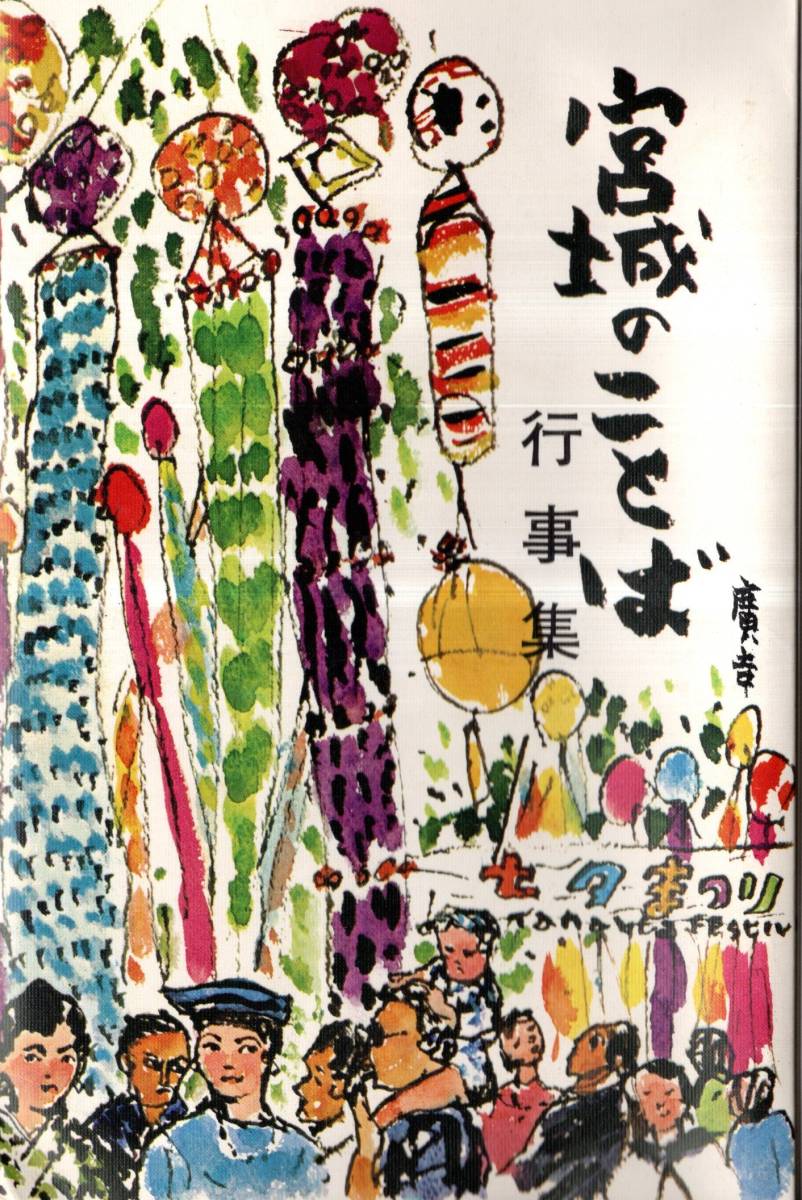 宮城のことば
行事集
廣幸
七夕まつり
TANABATA FESTIV